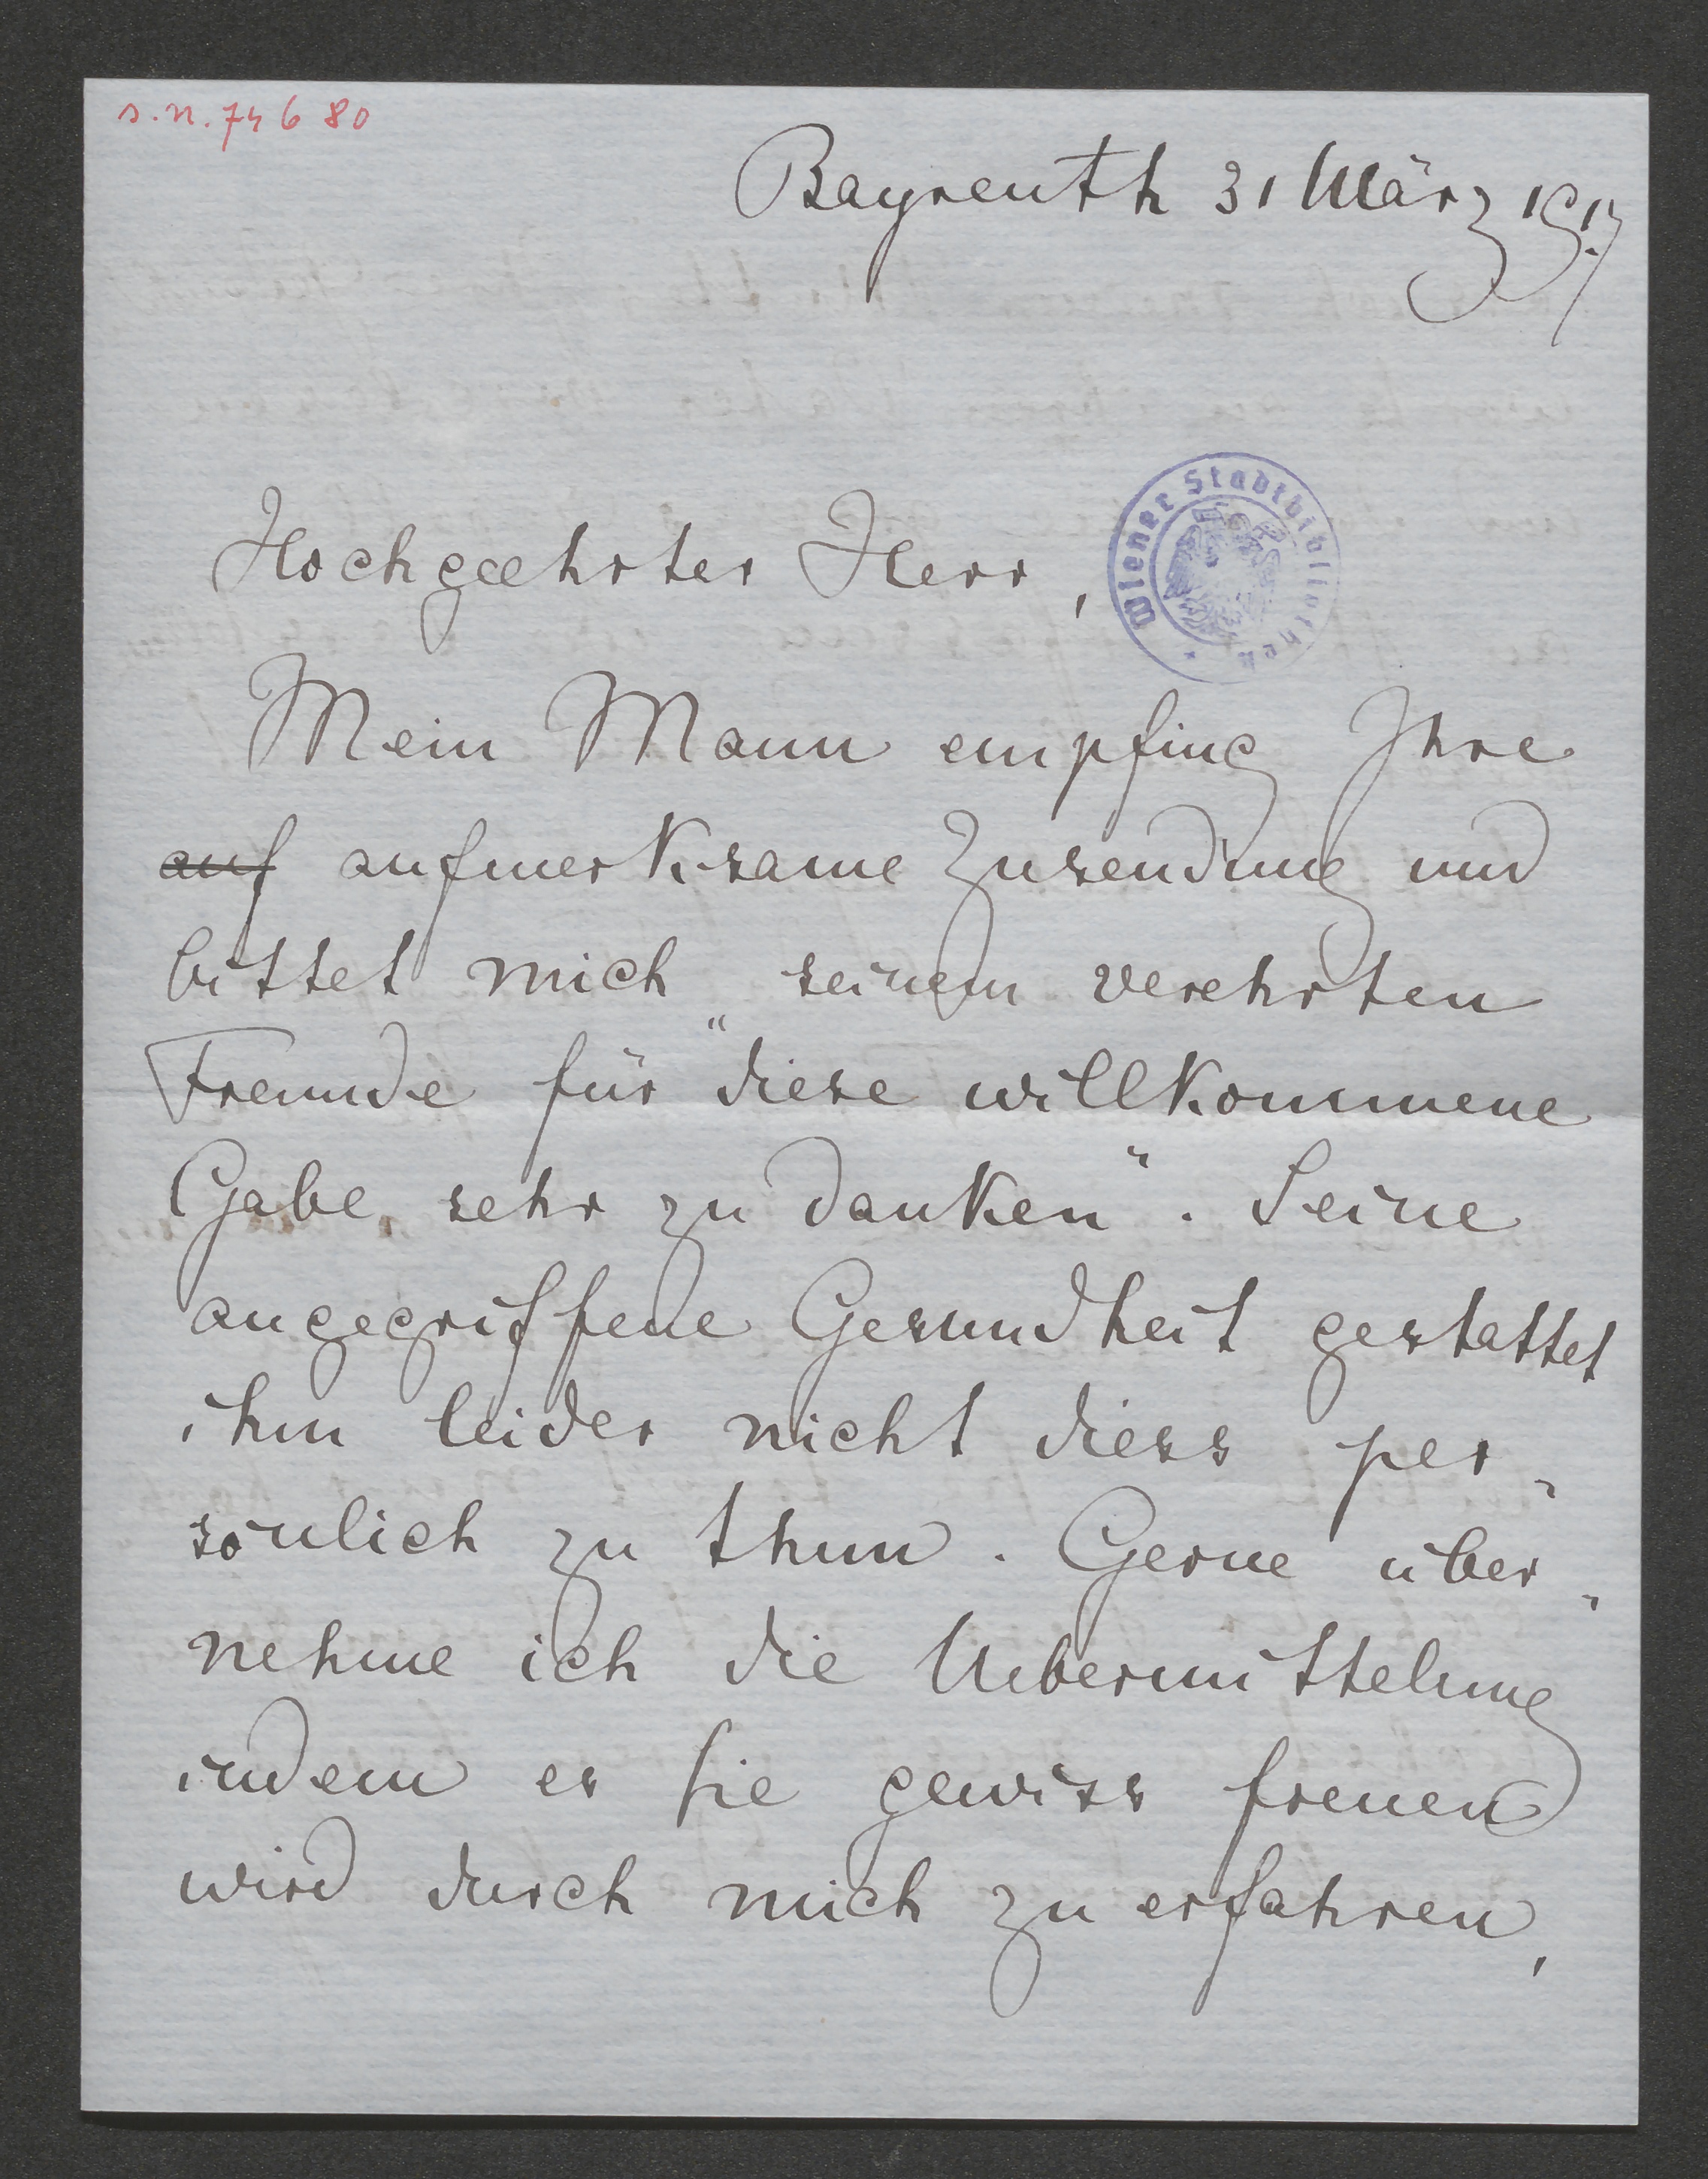 s.n. 74680
Bayreuth 31 März 1917
Wiener Stadtbibliothek
Hochgeehrter Herr,
Mein Mann empfing Ihre
auf aufmerksame Zusendung und
bittet mich seinem verehrten
Freunde für "diese willkommene
Gabe sehr zu danken". Seine
angegriffene Gesundheit gestattet
ihm leider nicht diess per-
sönlich zu thun. Gerne über-
nehme ich die Uebermittelung
indem es Sie gewiss freuen
wird durch mich zu erfahren,